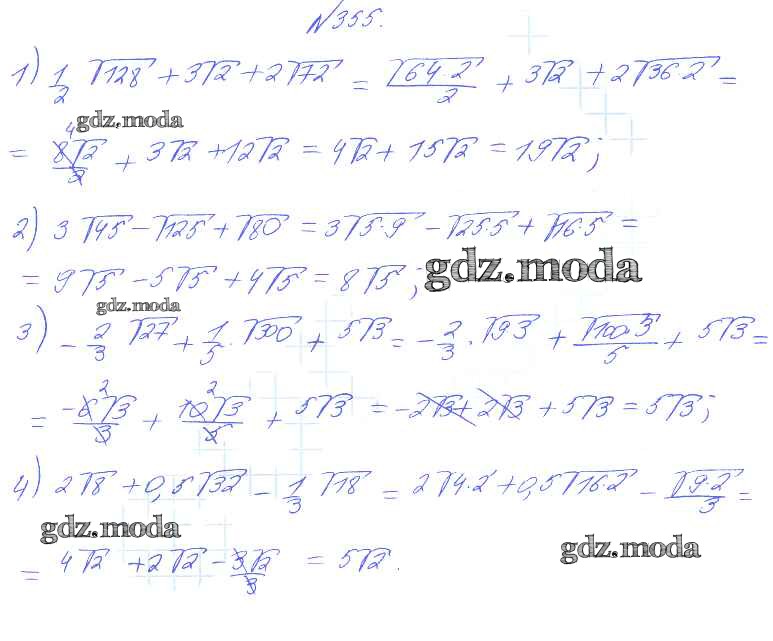 №355.
1) 1/2 √128 + 3√2 + 2√72 = √(64·2)/2 + 3√2 + 2√(36·2) =
gdz.moda
= 8√2/2 + 3√2 + 12√2 = 4√2 + 15√2 = 19√2;
2) 3√45 − √125 + √80 = 3√(5·9) − √(25·5) + √(16·5) =
= 9√5 − 5√5 + 4√5 = 8√5;
gdz.moda
gdz.moda
3) −2/3 √27 + 1/5·√300 + 5√3 = −2/3·√(9·3) + √(100·3)/5 + 5√3 =
= −6√3/3 + 10√3/5 + 5√3 = −2√3 + 2√3 + 5√3 = 5√3;
4) 2√8 + 0,5√32 − 1/3 √18 = 2√(4·2) + 0,5√(16·2) − √(9·2)/3 =
gdz.moda
gdz.moda
= 4√2 + 2√2 − 3√2/3 = 5√2.